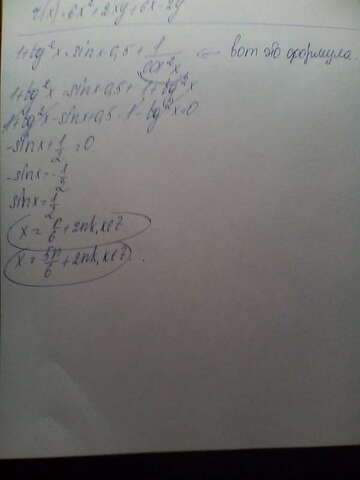 r(x)=6x²+2xy+6x-2y
1+tg²x=sinx-0,5+1/cos²x ⇐ вот это формула.
1+tg²x=sinx-0,5+1+tg²x
1+tg²x-sinx+0,5-1-tg²x=0
-sinx+1/2=0
-sinx=-1/2
sinx=1/2
x=π/6+2πk, k∈Z
x=5π/6+2πk, k∈Z.